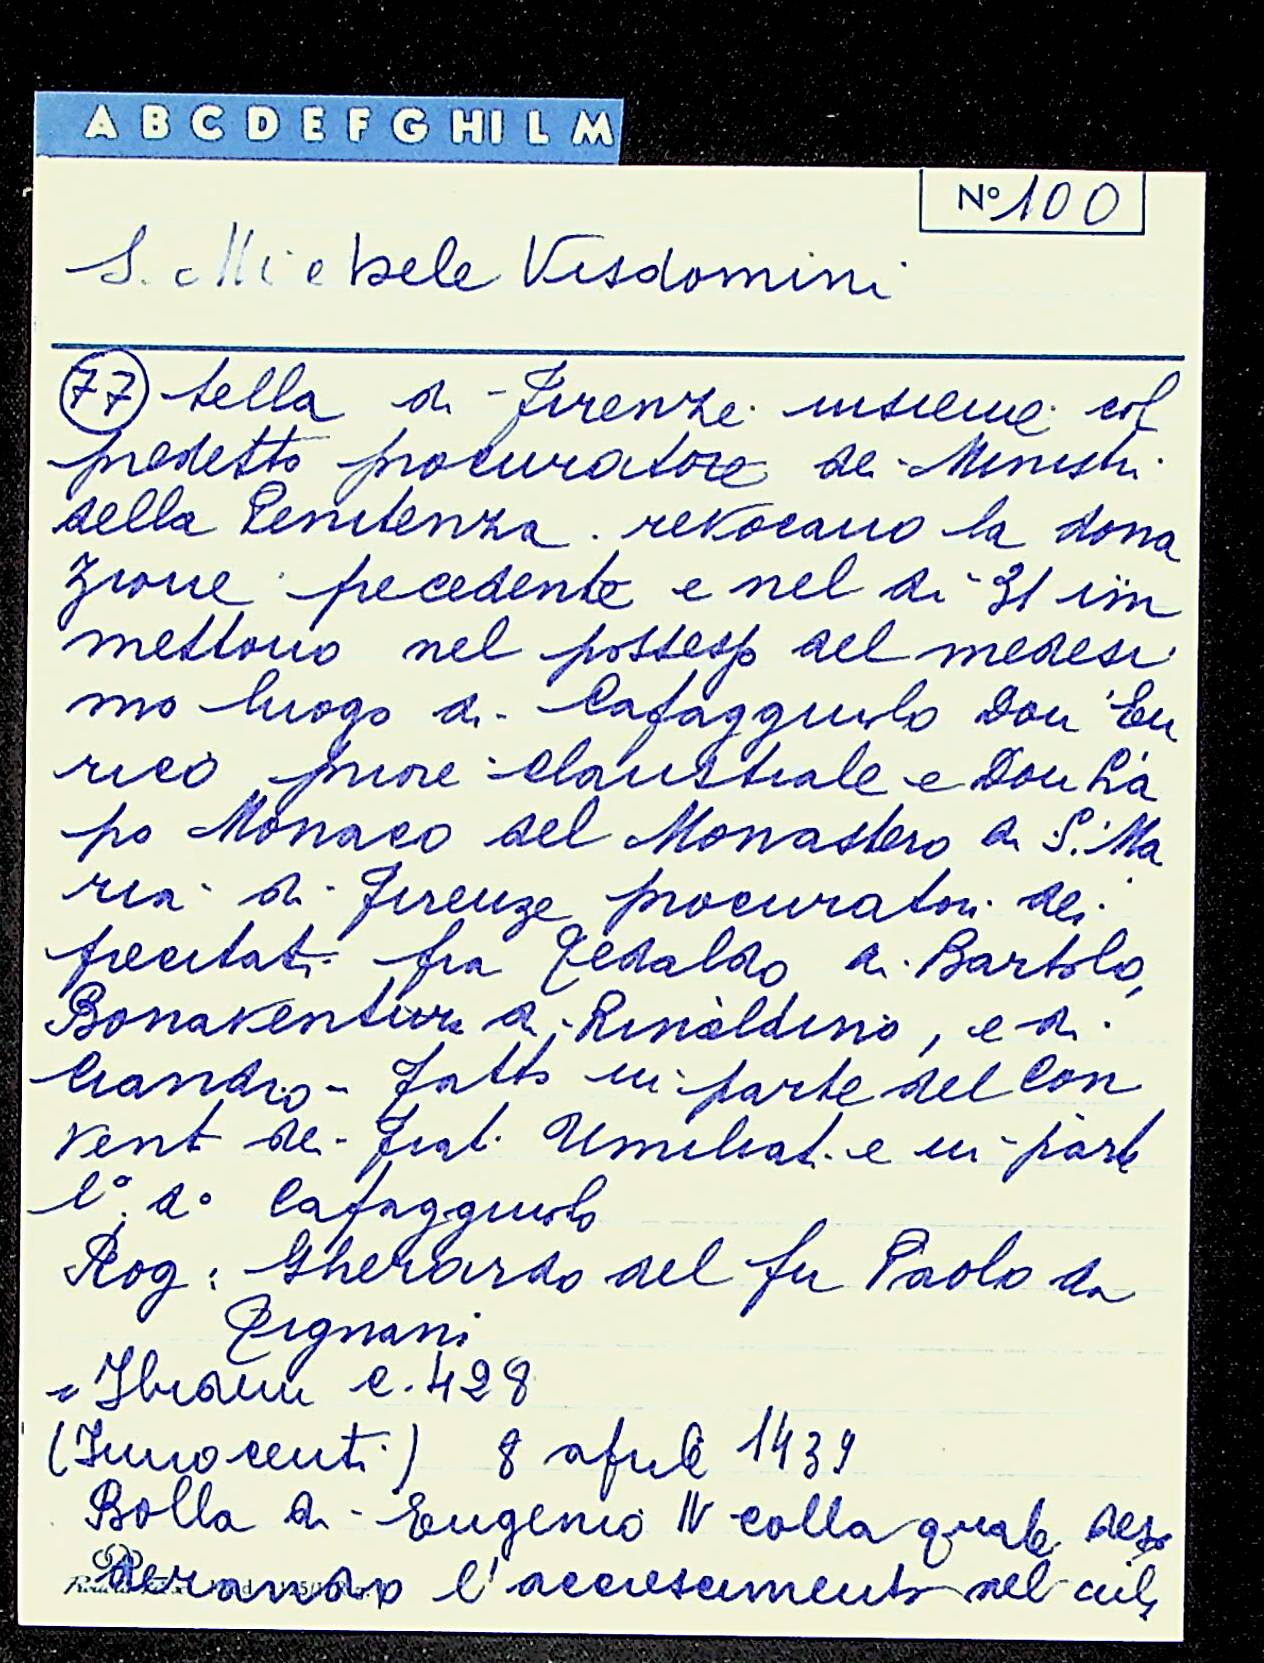 A B C D E F G HI L M
Nº 100
S. Michele Visdomini
77 tella di Firenze insieme col
predetto procuratore dei Ministri
della Penitenza. revocano la dona
zione precedente e nel dì 31 im
mettono nel possesso del medesi
mo luogo di Cafaggiuolo Don En
rico priore claustrale e Don La
po Monaco del Monastero di S. Ma
ria di Firenze procuratori dei
precitati fra Tedaldo di Bartolo,
Bonaventura di Rinaldino, e di
Ciandro - fatto in parte del Con
vent dei Frati Umiliati e in parte
l° d° Cafaggiuolo
Rog: Gherardo del fu Paolo da
Tignani
= Ibidem c. 428
(Innocenti) 8 aprile 1439
Bolla di Eugenio IV colla quale desi
derando l'accrescimento nel